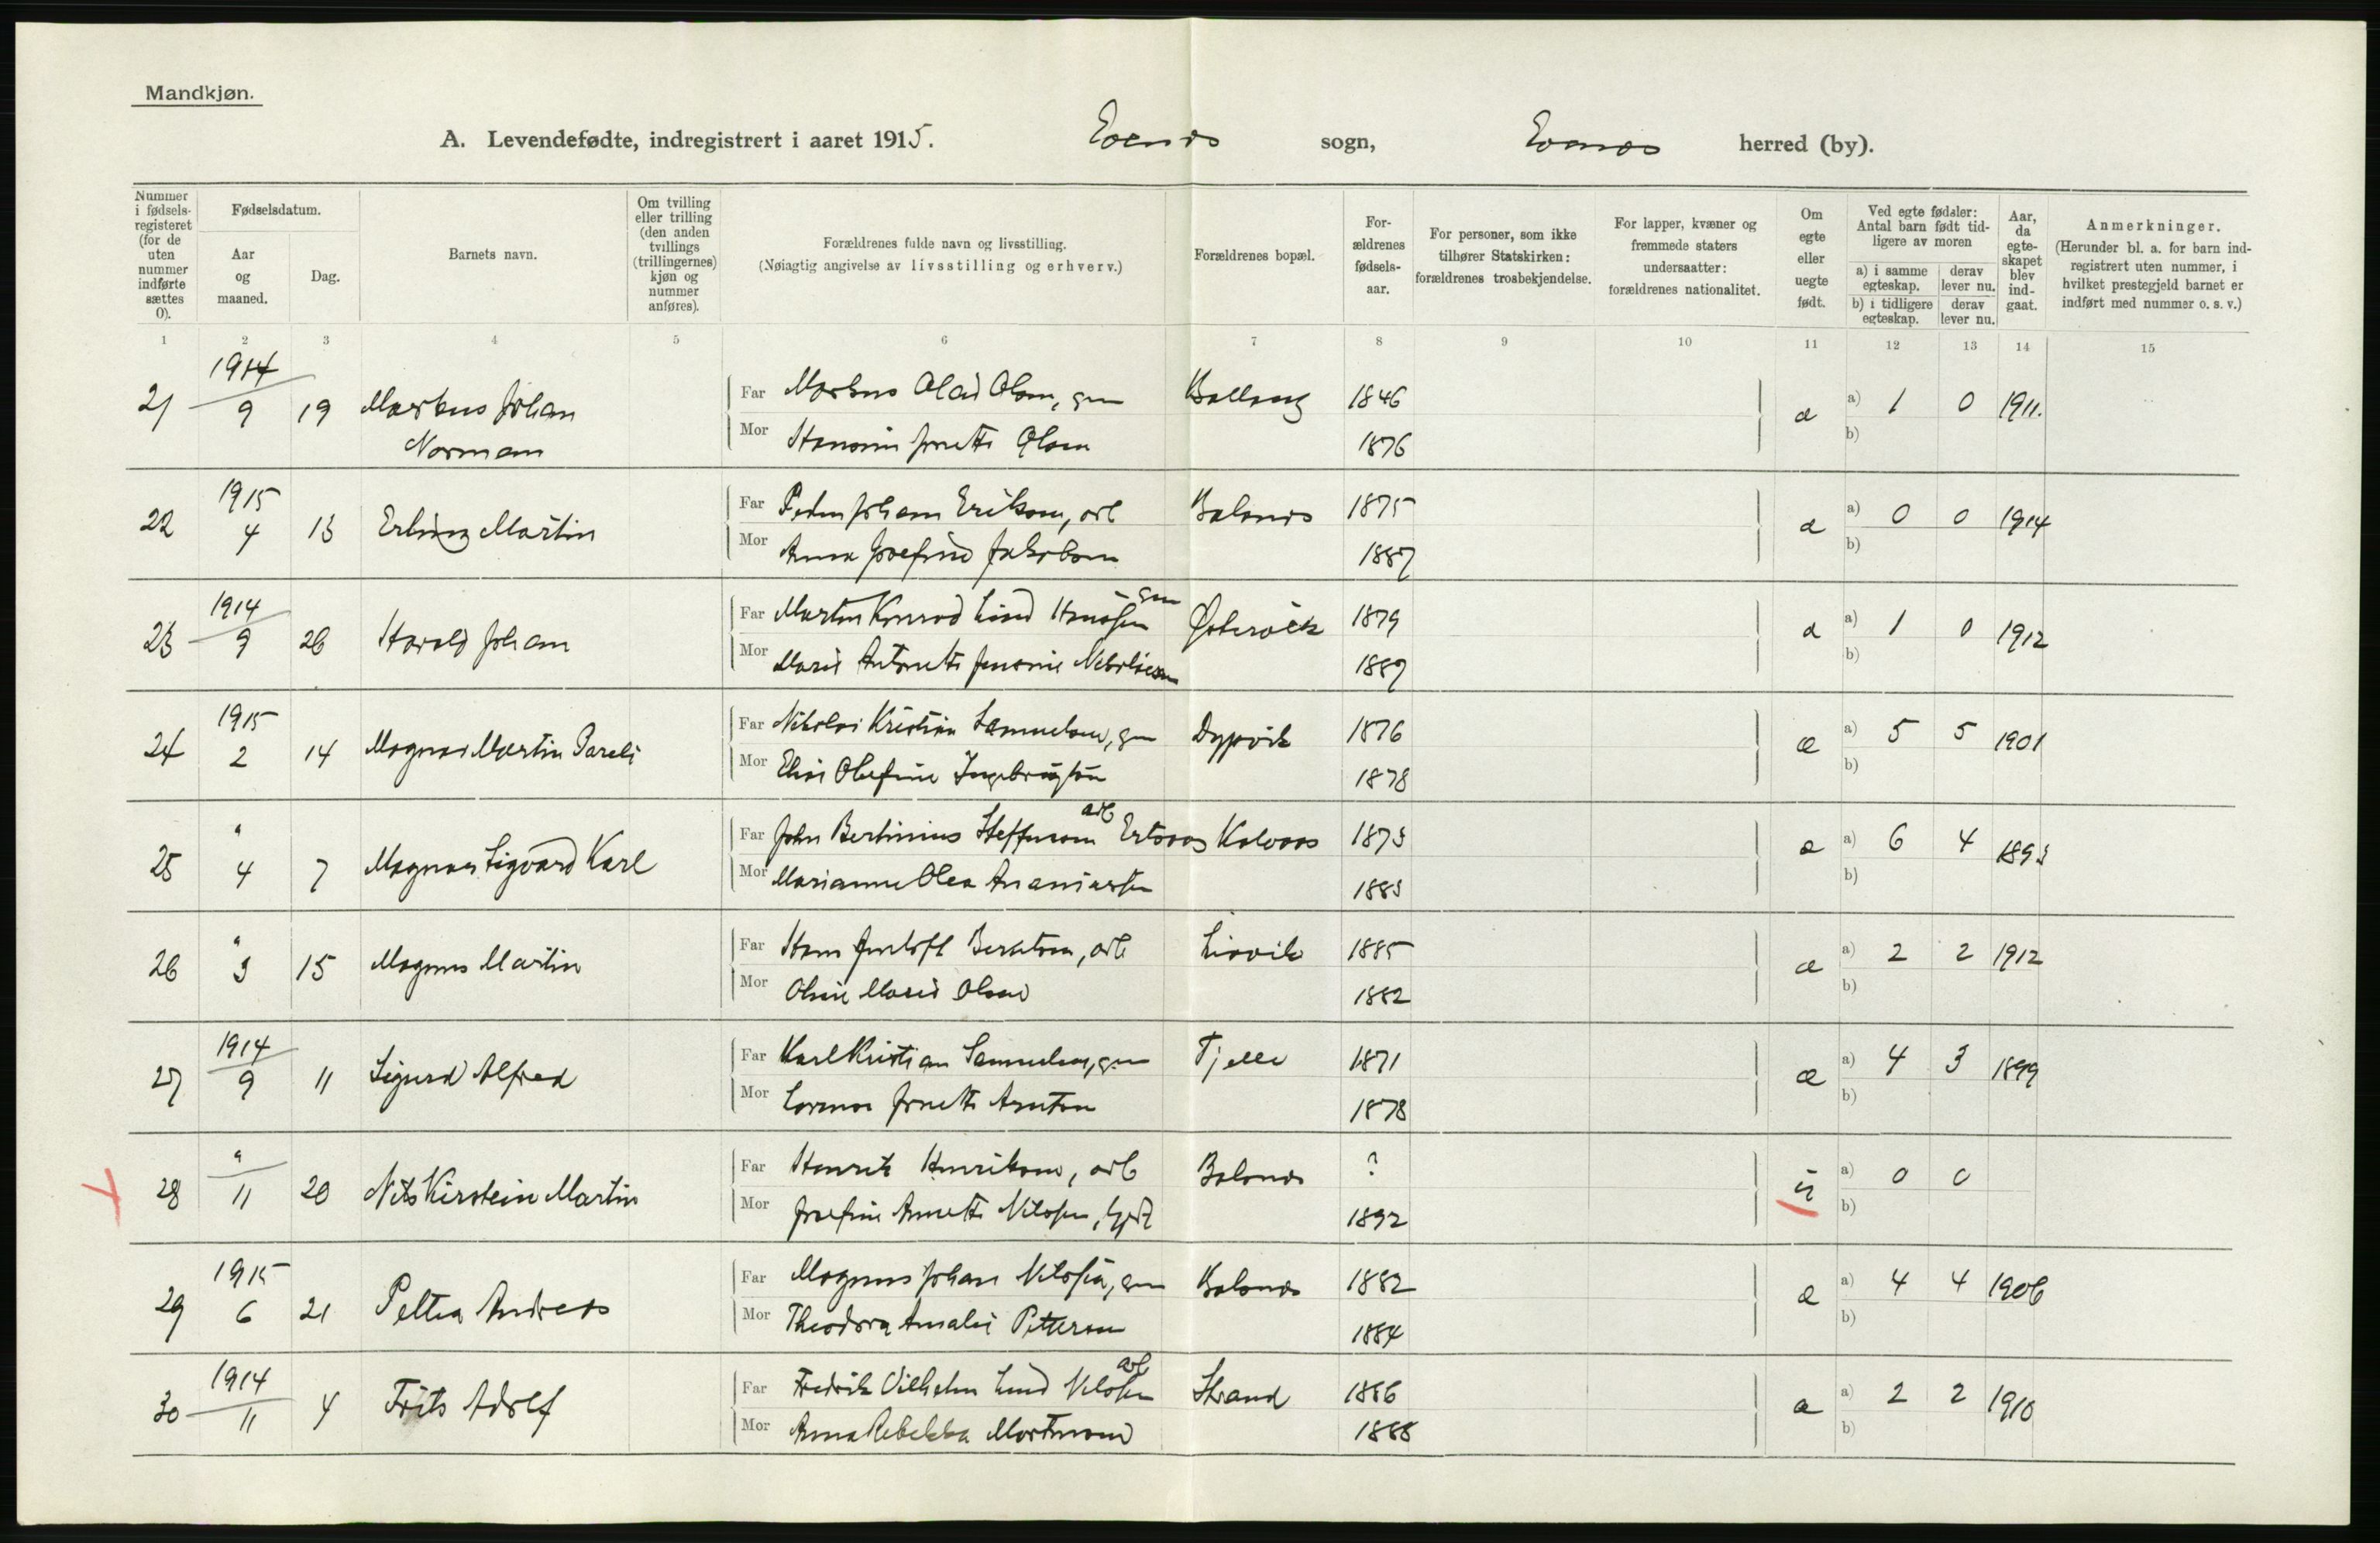 Mandkjøn.
A. Levendefødte, indregistrert i aaret 1915. Evenes sogn, Evenes herred (by).
Nummer i fødsels-registeret (for de uten nummer indførte sættes 0).
Fødselsdatum.
Aar og maaned.
Dag.
Barnets navn.
Om tvilling eller trilling (den anden tvillings (trillingernes) kjøn og nummer anføres).
Forældrenes fulde navn og livsstilling.
(Nøiagtig angivelse av livsstilling og erhverv.)
Forældrenes bopæl.
For-ældrenes fødsels-aar.
For personer, som ikke tilhører Statskirken: forældrenes trosbekjendelse.
For lapper, kvæner og fremmede staters undersaatter: forældrenes nationalitet.
Om egte eller uegte født.
Ved egte fødsler: Antal barn født tid-ligere av moren
a) i samme egteskap.
derav lever nu.
b) i tidligere egteskap.
derav lever nu.
Aar, da egte-skapet blev ind-gaat.
Anmerkninger.
(Herunder bl. a. for barn ind-registrert uten nummer, i hvilket prestegjeld barnet er indført med nummer o. s. v.)
1 2 3 4 5 6 7 8 9 10 11 12 13 14 15
1914
21 9 19 Markus Johan Far Markus Olai Olsen, gm Ballang 1846 æ a) 1 0 1911.
Norman Mor Hansine Jonette Olsen 1876 b)
1915
22 4 13 Erling Martin Far Peder Johan Eriksen, arb Balsnes 1875 æ a) 0 0 1914
Mor Anna Josefine Jakobsen 1887 b)
1914 gm
23 9 26 Harald Johan Far Martin Konrad Lind Hansen Østervik 1879 æ a) 1 0 1912
Mor Marie Antonette Jensine Nikolaisen 1889 b)
1915
24 2 14 Magnus Martin Pareli Far Nikolai Kristian Samuelsen, gm Dypvik 1876 æ a) 5 5 1901
Mor Elise Olefine Ingebrigtsen 1878 b)
" arb
25 4 7 Magnus Sigvard Karl Far John Bertinius Steffensen Kalvaas 1873 æ a) 6 4 1893
Mor Marianne Olea Ananiassen 1883 b)
"
26 3 15 Magnus Martin Far Hans Berntsen, arb Liavik 1885 æ a) 2 2 1912
Mor Oline Marie Olsen 1882 b)
1914
27 9 11 Sigurd Alfred Far Karl Kristian Samuelsen, gm Tjelle 1871 æ a) 4 3 1899
Mor Jonette Arntsen 1878 b)
"
28 11 20 Nils Kirstein Martin Far Henrik Henriksen, arb Balsnes ? u a) 0 0
Mor Josefine Annette Nilssen, 1892 b)
1915
29 6 21 Petter Andreas Far Magnus Johan Nilssen, gm Balsnes 1882 æ a) 4 4 1906
Mor Theodora Amalie Pettersen 1884 b)
1914 arb
30 11 4 Frits Adolf Far Fredrik Vilhelm Lund Nilssen Strand 1886 æ a) 2 2 1910
Mor Anna Rebekka Mortensen 1888 b)